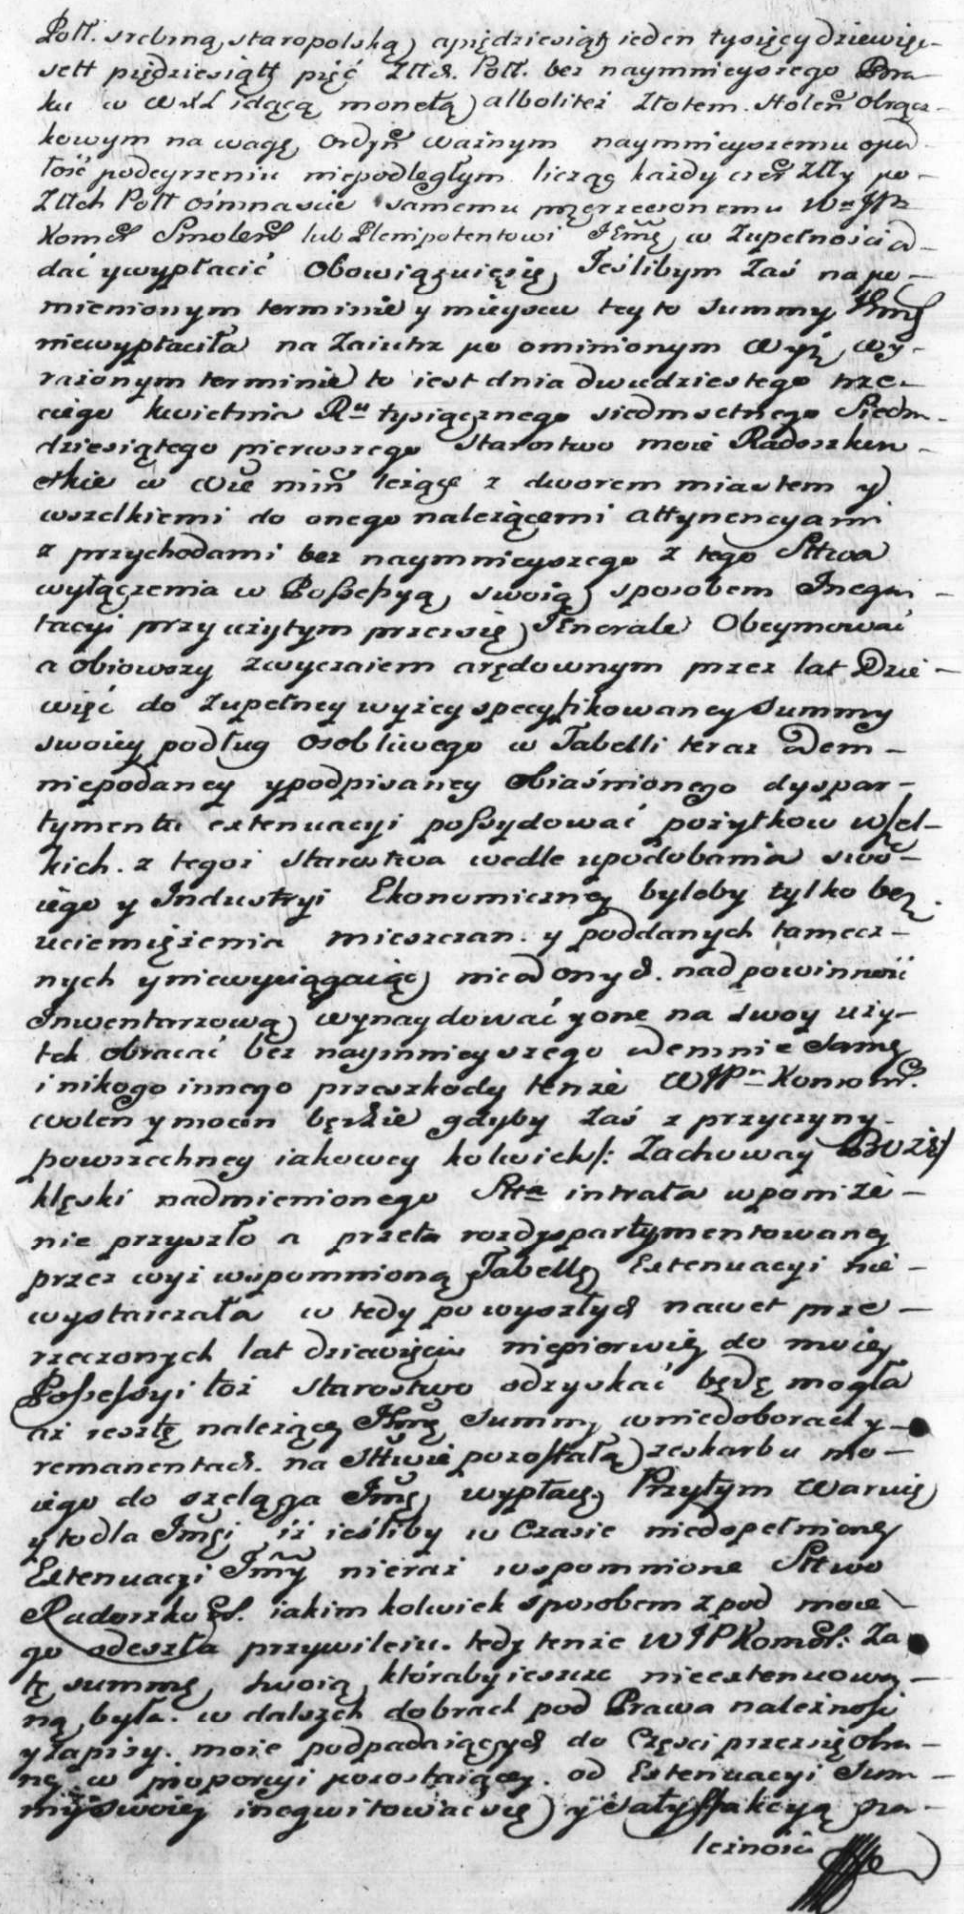 Poll. srebrną staropolską apiędziesiąt ieden tysięcy dziewięć-
sett pięćdziesiątt pięć Złłch. Poll. bez naymnieyszego Bra-
ku w WXL idącą monetą alboliteż Złotem Holen obrącz-
kowym na wagę ordyn ważnym naymnieyszemu opad-
łość podeyrzeniu niepodległym licząc każdy czer Złły po-
Złłch Poll osmnascie samemu przerzeczonemu
Komor Smolen lub Plenipotentowi w Zupełności od-
dać y wypłacić Obowiązuięsię, Jeślibym Zaś na po-
mienionym terminie y mieyscu tey to Summy
niewypłaciła na Zaiutrz po ominionym Wyż wy-
rażonym terminie to iest dnia dwudziestego trze-
ciego kwietnia Rku tysiącznego siedmsetnego Siedm-
dziesiątego pierwszego Starostwo moie Radoszkow-
skie w Wie min leżące z dworem miastem y
wszelkiemi do onego należącemi attynencyami
z przychodami bez naymnieyszego z tego Sttwa
wyłączenia w Possessyą swoią sposobem Inegwi-
tacyi przy użytym przezsię Jenerale Obeymować
a obiowszy zwyczaiem arędownym przez lat Dzie-
więć do Zupełney wyżey specyfikowaney Summy
swoiey podług osobliwego w Tabelli teraz Odem-
niepodaney ypodpisaney obiaśnionego dyspar-
tymentu extenuacyi possydować pożytkow wszel-
kich. z tegoż Starostwa wedle upodobania swo-
iego y Industryi Ekonomiczney byleby tylko bez
uciemiężenia mieszczan. y poddanych tamecz-
nych yniewyciągaiąc nic od onych. nad powinność
Inwentarzową wynaydować yone na swoy uży-
tek obracać bez naymnieyszego odemnie Samey
i nikogo innego przeszkody tenże WJPn Komor.
wolen ymocen będzie gdyby Zaś z przyczyny
powszechney iakowey kolwiek /: Zachoway Boże :/
klęski nadmienionego Sttwa intrata w poniże-
nie przyszło a przeto rozdyspartymentowaney
przez wyż wspomnioną Tabellę Extenuacyi nie-
wystarczała w tedy po wyszłych nawet prze-
rzeczonych lat dziewięciu niepierwiey do moiey
Possessyi toż Starostwo odzyskać będę mogła
aż resztę należącey Summy w niedoborach y-
remanentach. na Sttwie pozostałą zeskarbu mo-
iego do szeląga wypłacę. Przytym Waruię
y to dla iż ieśliby w Czasie niedopełnioney
Extenuacyi nieraz wspomnione Sttwo
Radoszkoch. iakim kolwiek sposobem z pod moie-
go odeszła przywileiu. tedy tenże WJP Komor: Za
tę summę, swoią, któraby ieszcze nieextenuowa-
ną była. w dalszych dobrach pod Prawa należnosci
y Zapisy. moie podpadaiących do Częsci przezsię obra-
ney w proporcyi pozostaiącey. od Extenuacyi Sum-
my swoiey inegwitowac się y Satysffakcyą zna-
leznosci